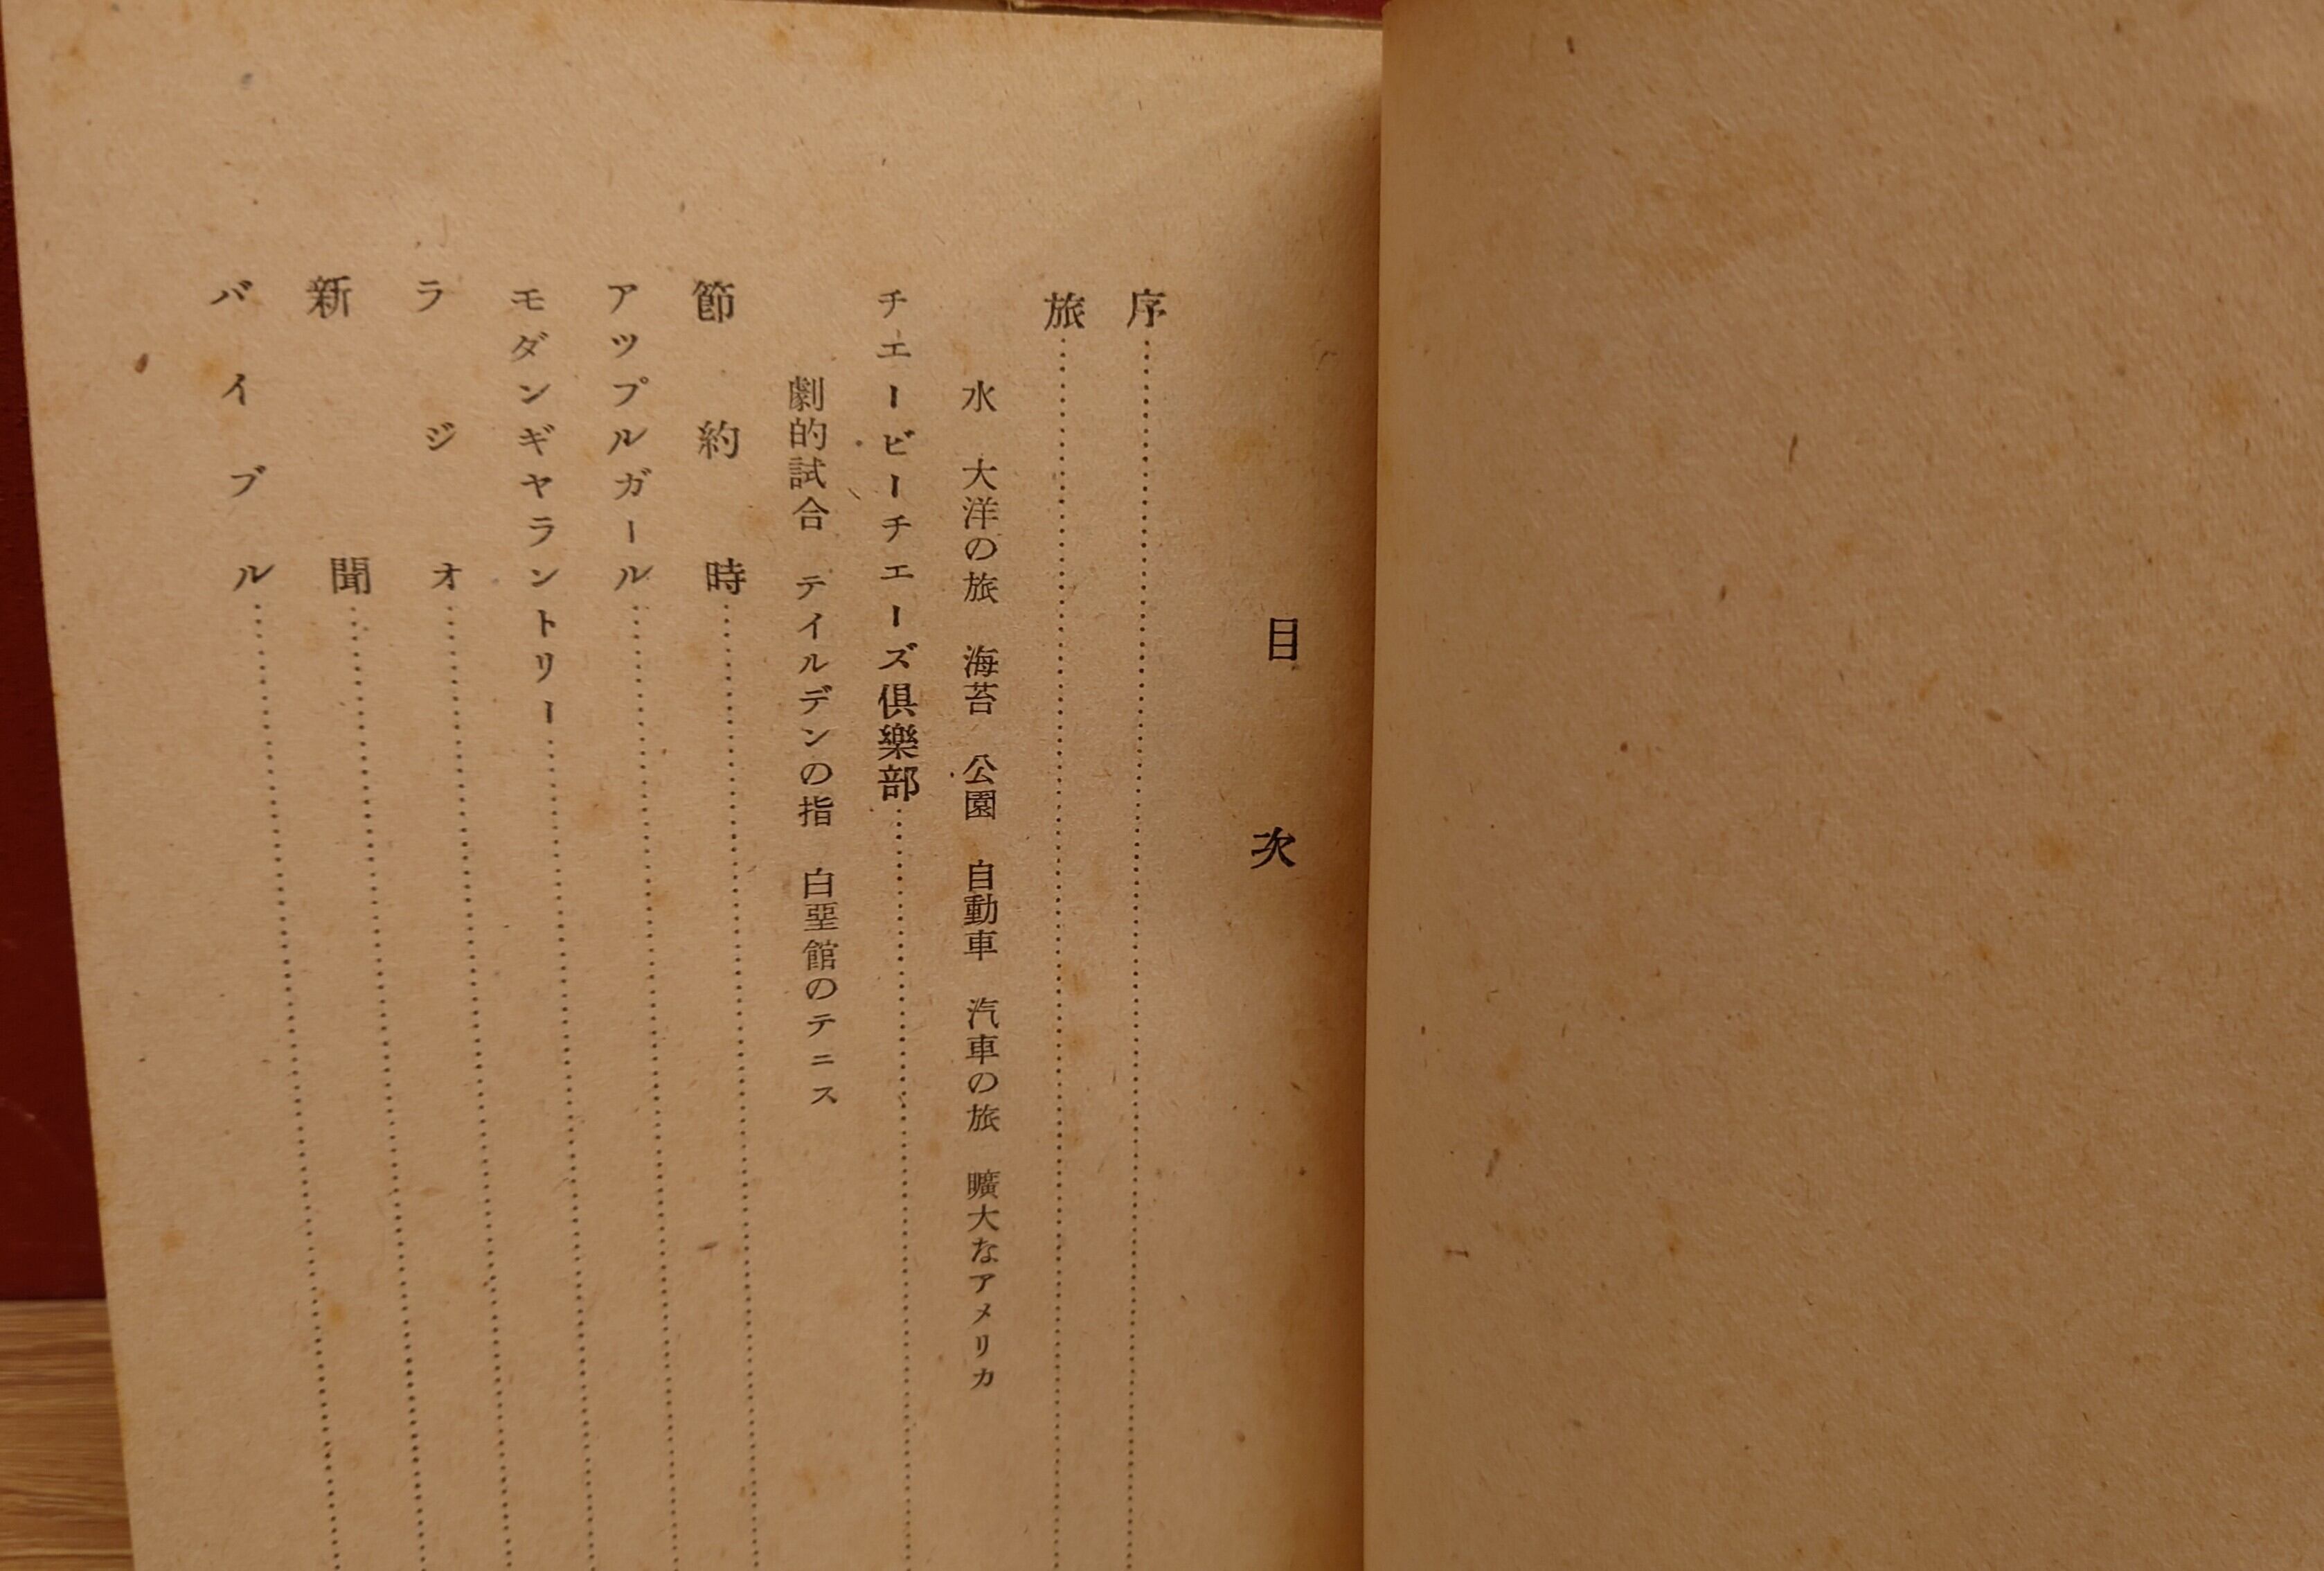 目次
序
旅
水 大洋の旅 海苔 公園 自動車 汽車の旅 曠大なアメリカ
チエービーチエーズ倶樂部
劇的試合 テイルデンの指 白堊館のテニス
節約時
アツプルガール
モダンギヤラントリー
ラジオ
新聞
バイブル